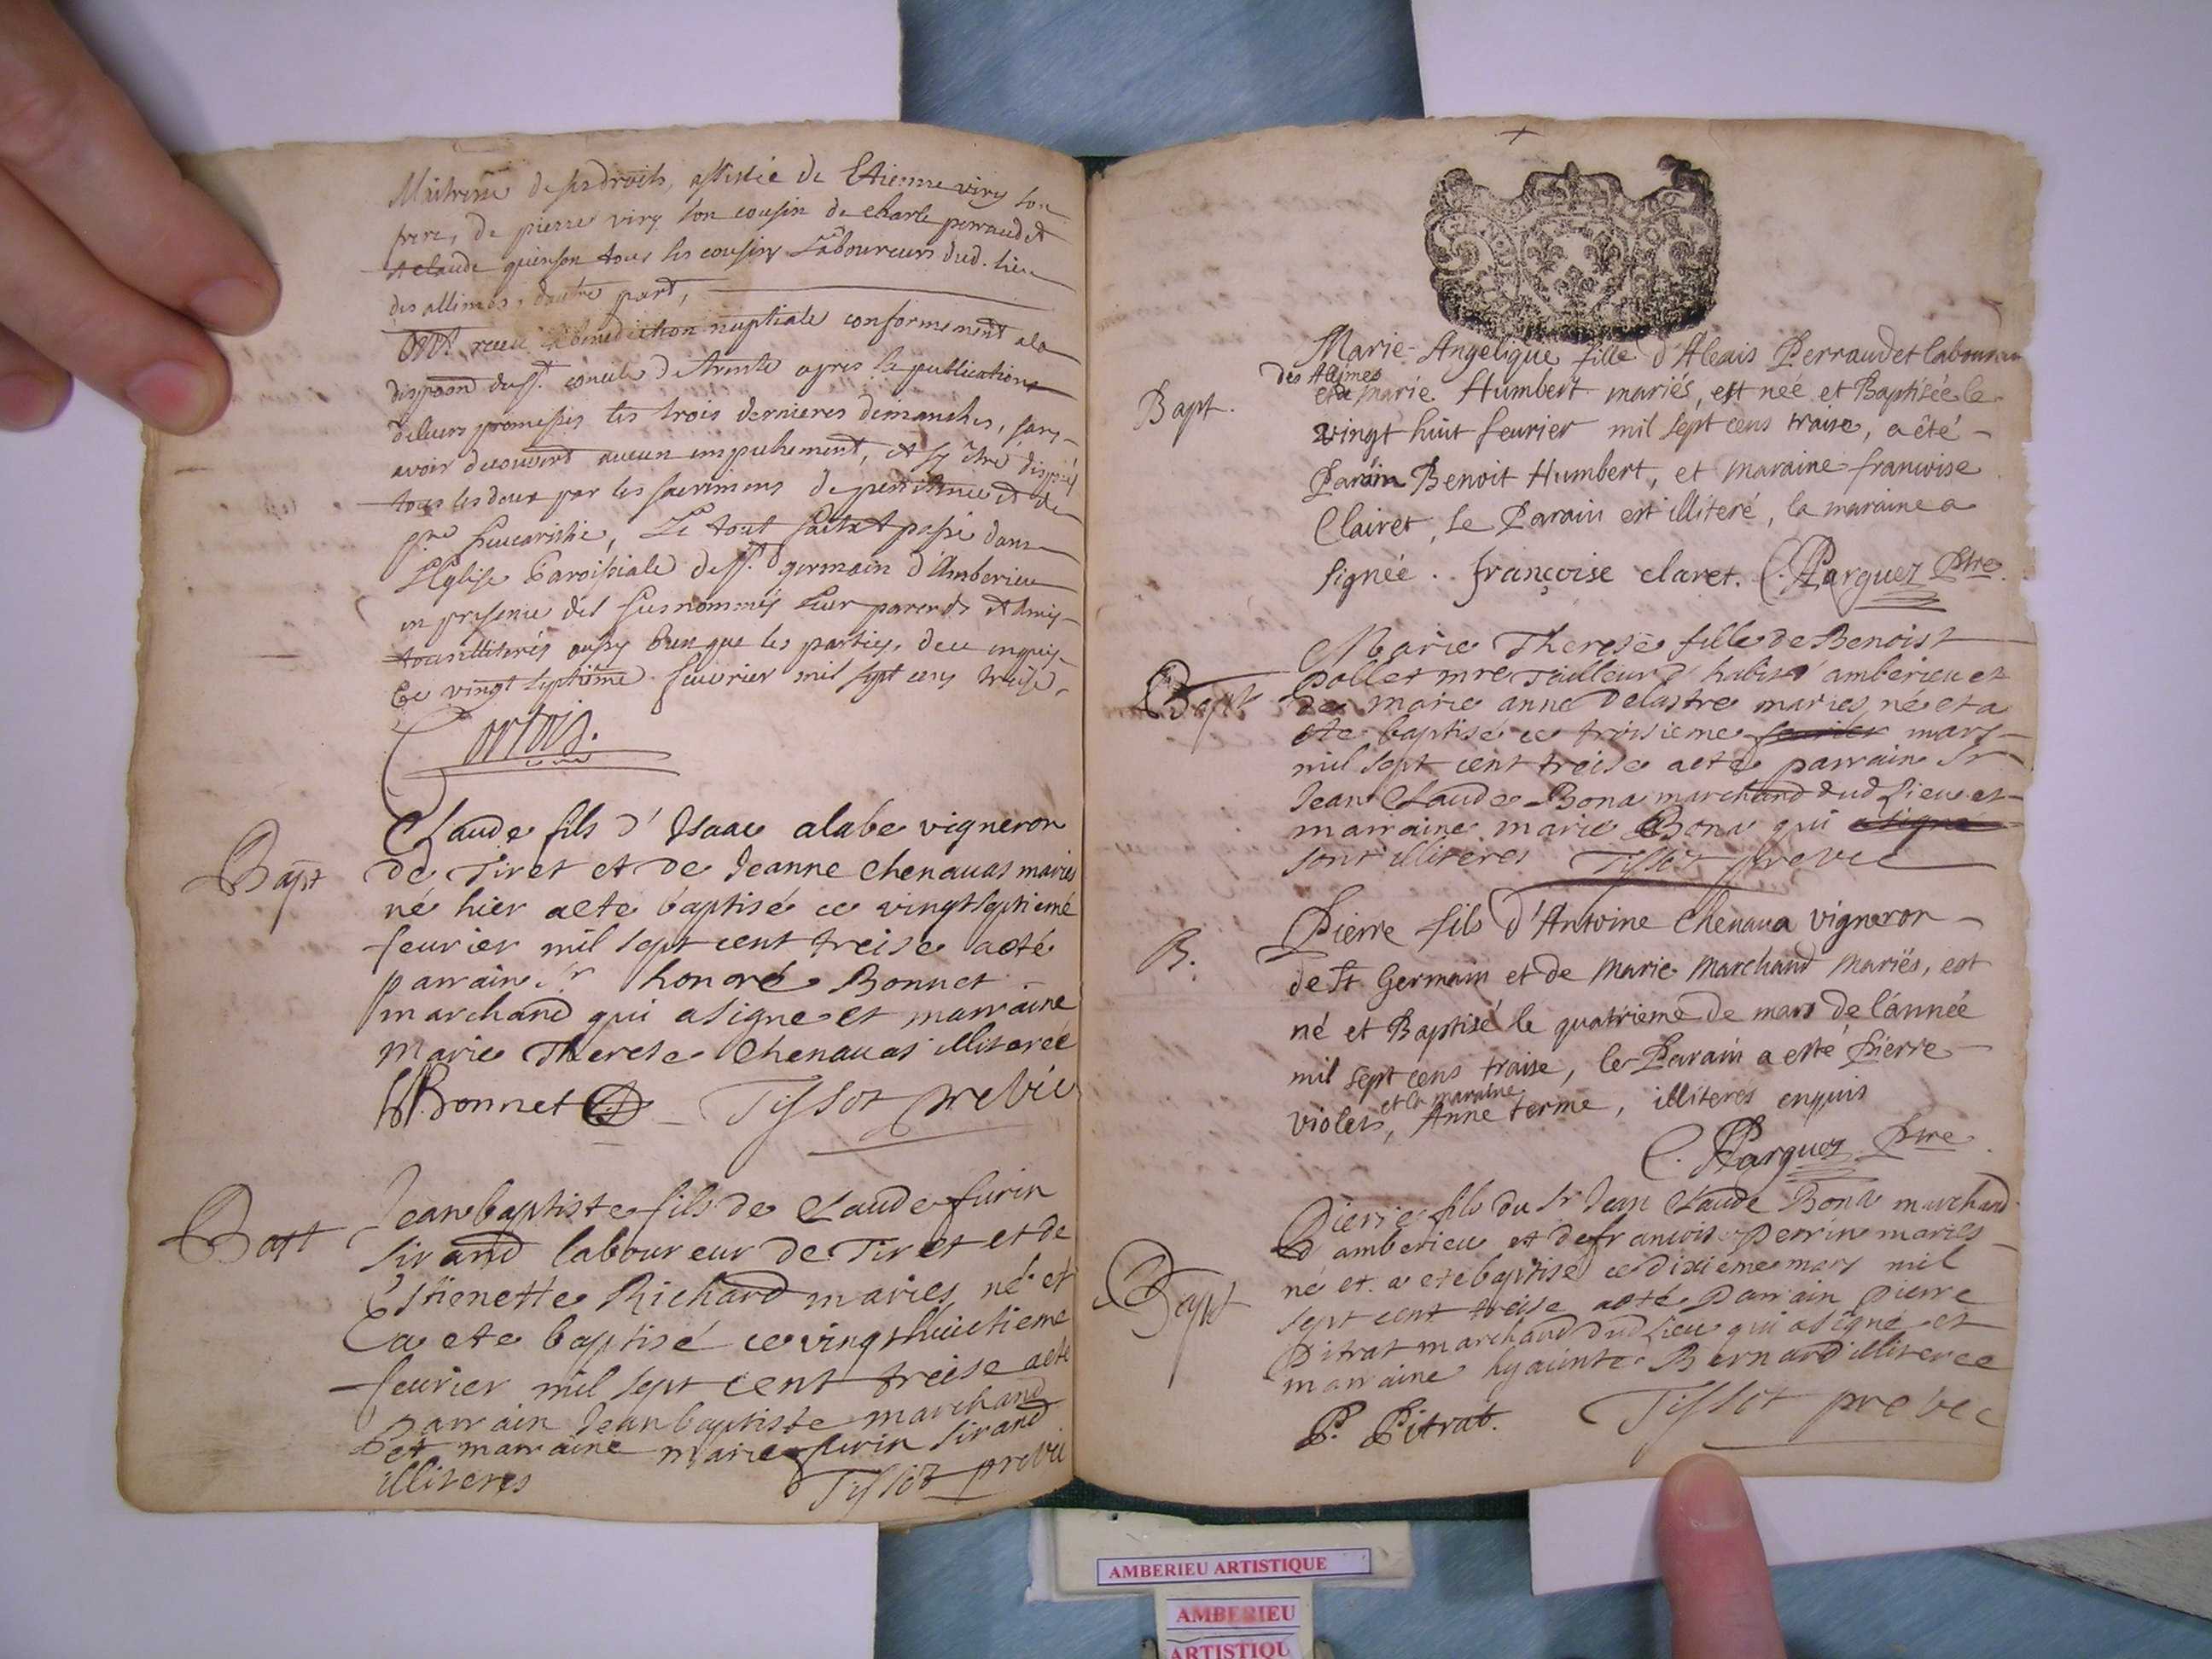 Maitresse de ses droits, assistée de Etienne viry son
frere, de pierre viry son cousin de charle perraudet
et claude guinson tous ses cousins Laboureurs dud. lieu
des allimes, dautre part,
Ont receu la benediction nuptiale conformement a la
dispoon du St. concile de trente apres la publication
de leurs promesses les trois dernieres dimanches, sans
avoir decouvert aucun empechement, et sy être disposés
tous les deux par les sacremens de penitence et de
Eucaristie, Le tout fait et passé dans
L'Eglise Paroissiale de St. germain d'Amberieu
en presence des susnommés leur parents et amis
tous illiterés aussy bien que les parties, de ce enquis
Ce vingt septieme feuvrier mil sept cens treise,
Bapt
Claude fils d'Isaac alabe vigneron
de Tiret et de Jeanne Chenauas maries
né hier a ete baptisé ce vingtseptieme
feurier mil sept cent treise a eté
parrain Sr honoré Bonnet
marchand qui a signe et marraine
Marie Therese Chenauas illiterée
H Bonnet Tissot pre vic
Bapt
Jean baptiste fils de Claude furin
sirand laboureur de Tiret et de
Estienette Richard maries né et
a ete baptisé ce vingthuictieme
feurier mil sept cent treise a eté
parrain Jean baptiste marchand
et marraine marie furin sirand
illiteres Tissot pre vic
Bapt.
Marie-Angelique fille d'Alexis Perraudet laboureur
des Allimes
et de Marie Humbert mariés, est née et Baptisée le
vingt huit feurier mil sept cens traise, a été
Parain Benoit Humbert, et maraine francoise
Clairet, le Parain est illiteré, la maraine a
signée. françoise claret. C. Parguez Ptre.
Bapt
Marie Therese fille de Benoist
pollet mre Tailleur d'habis d'amberieu et
de marie anne Delastre maries né et a
ete baptisé ce troisieme feurier mars
mil sept cent treise a eté parrain Sr
Jean Claude Bona marchand dud Lieu et
marraine marie Bona qui a signe
sont illiteres Tissot pre vic
B.
Pierre fils d'Antoine Chenaua vigneron
de St Germain et de Marie Marchand Mariés, est
né et Baptisé le quatrieme de mars de l'année
mil sept cens traise, le Parain a esté Pierre
et la maraine
violet, Anne terme, illiteres enquis
C. Parguez Ptre.
Bapt
Pierre fils du Sr Jean Claude Bona marchand
d'amberieu et de francoise Perrin maries
né et a ete baptisé ce dixieme mars mil
sept cent treise a eté Parrain pierre
Pitrat marchand dud Lieu qui a signé et
marraine hyacinte Bernard illiteree
P. Pitrat. Tissot pre vic
AMBERIEU ARTISTIQUE
AMBERIEU
ARTISTIQU